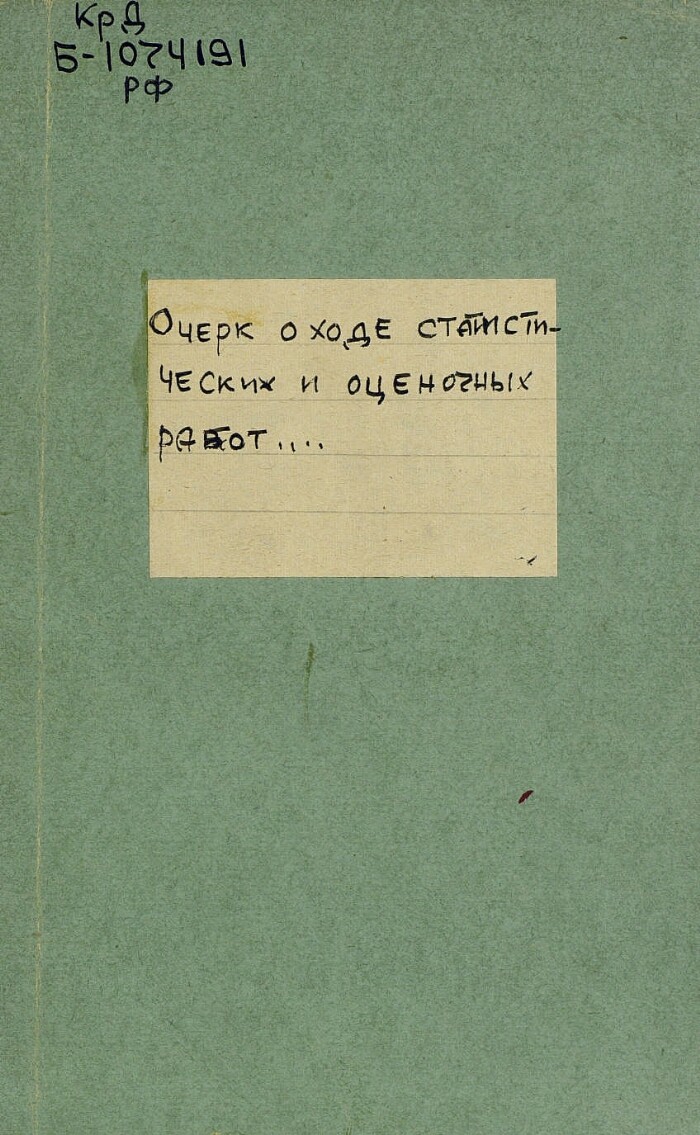 КрД
Б-1074191
РФ
Очерк о ходе статисти-
ческих и оценочных
работ....